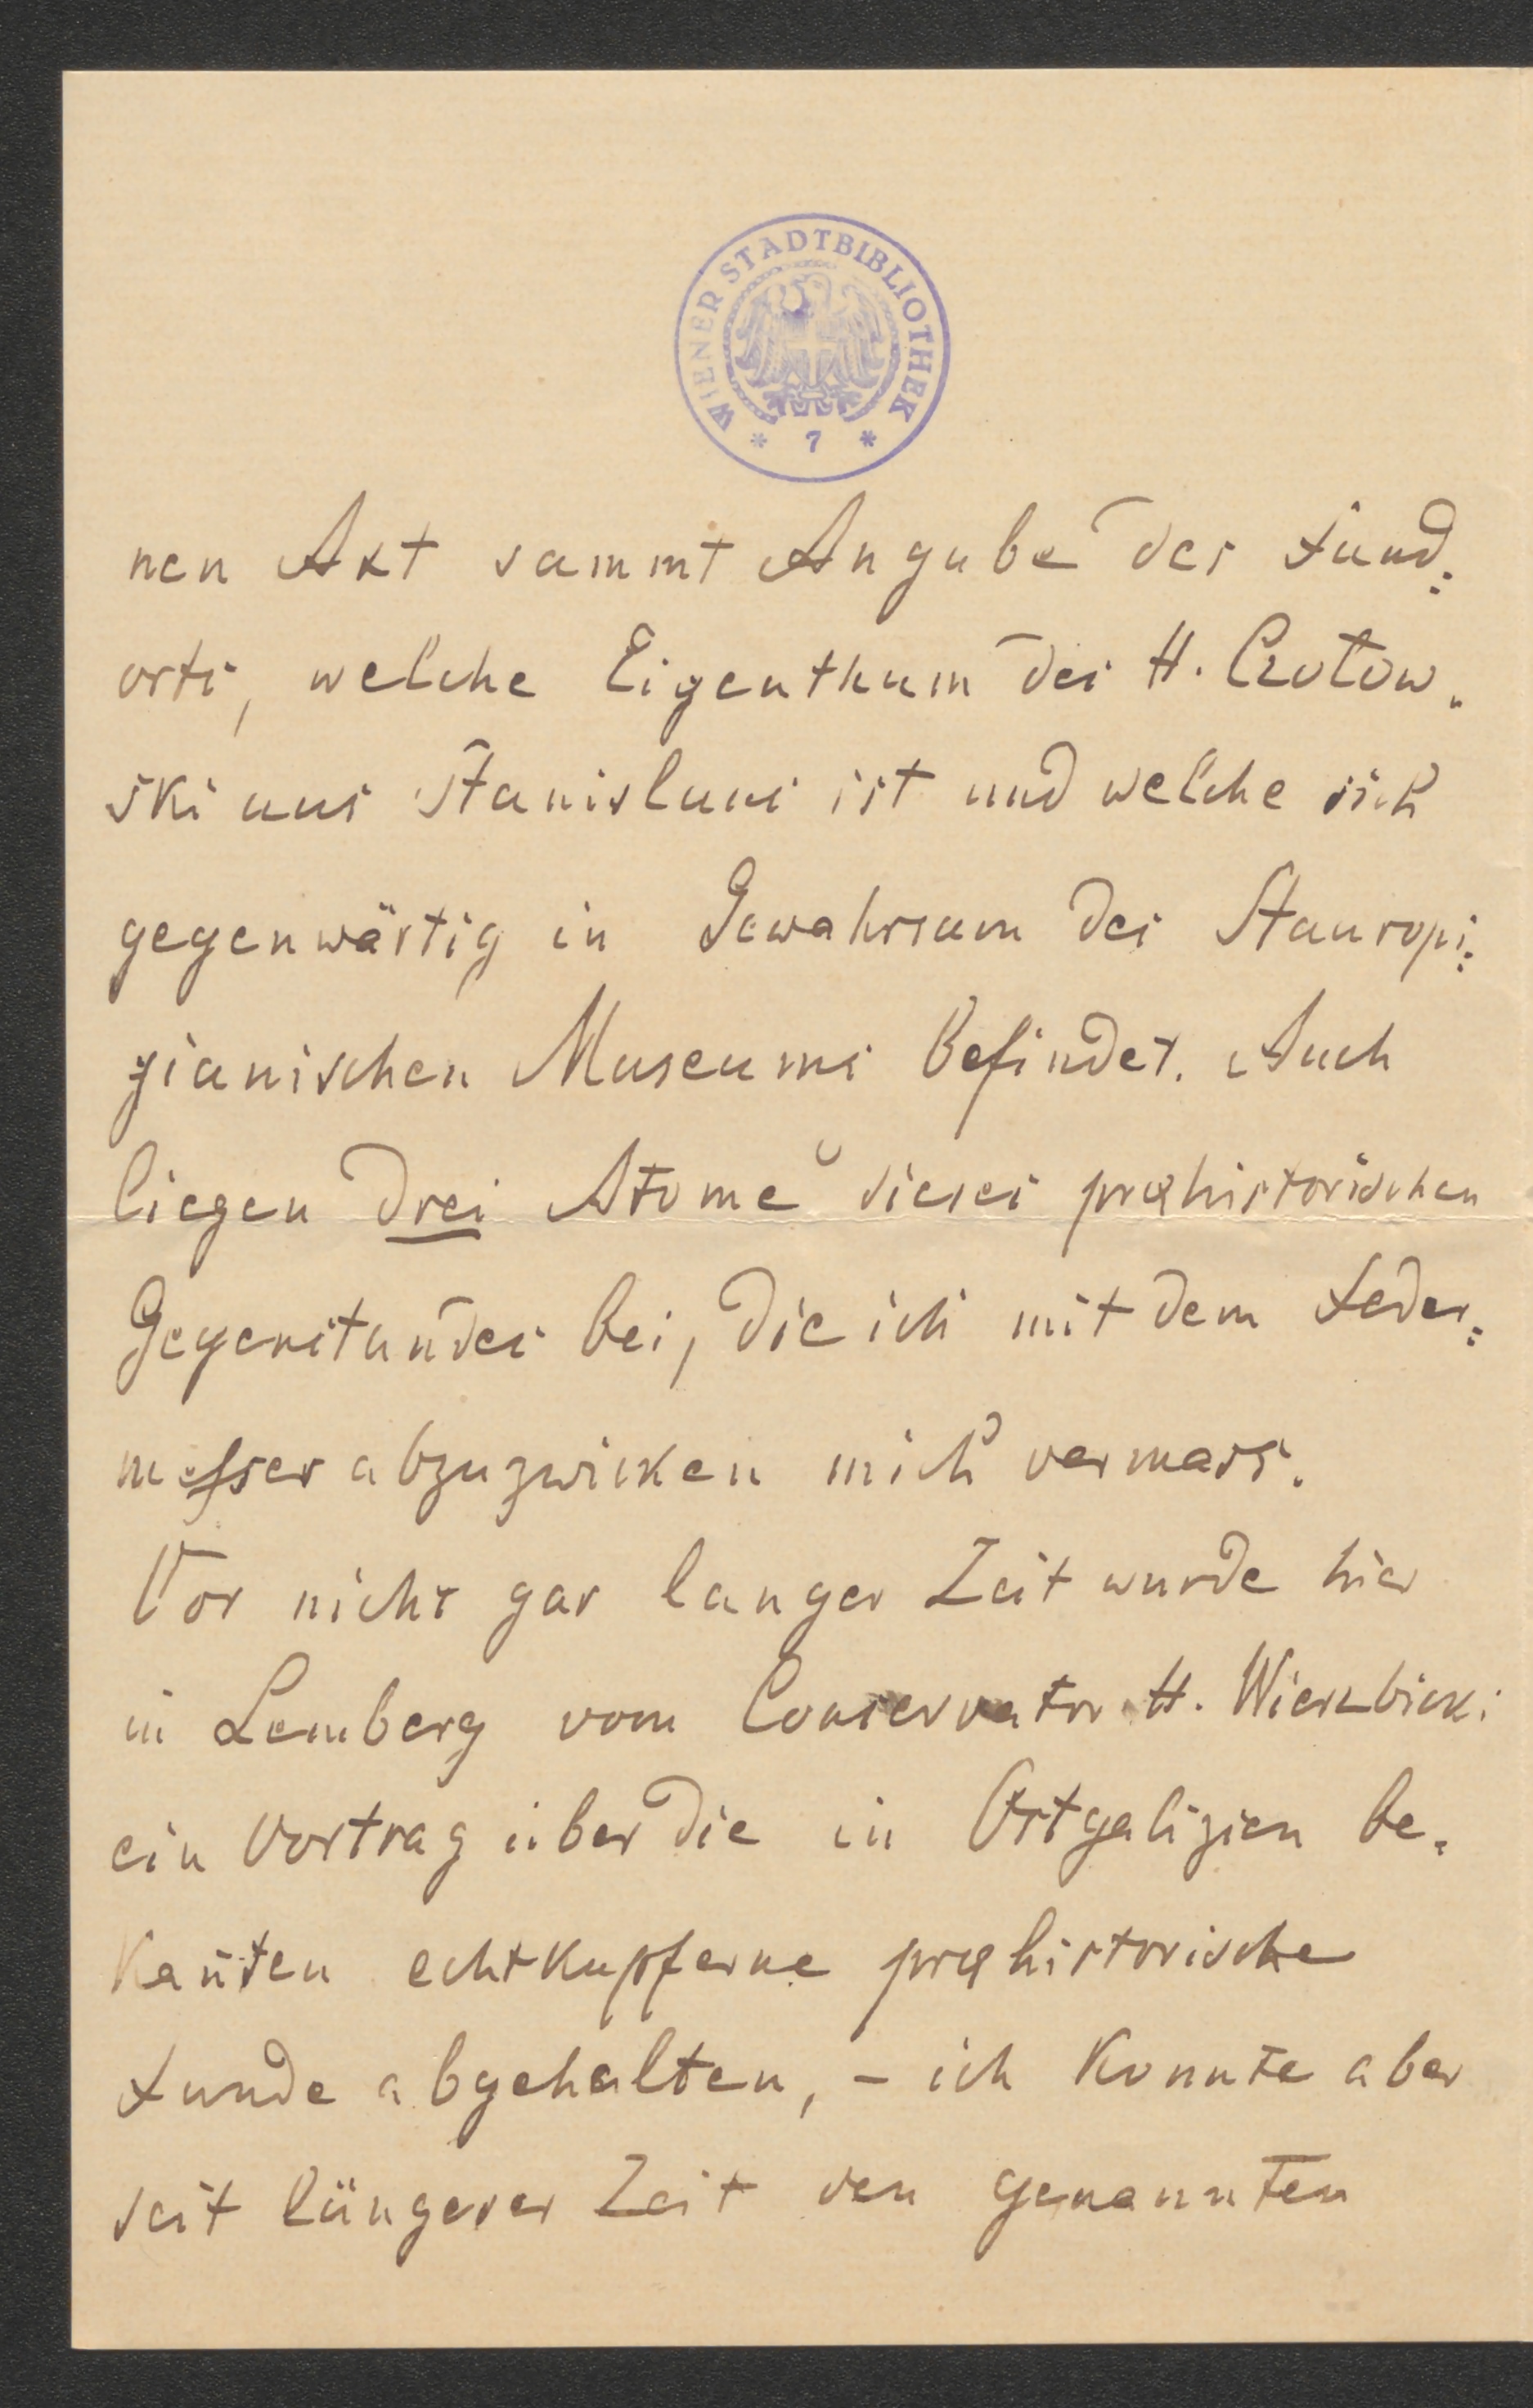 WIENER STADTBIBLIOTHEK
* 7 *
nen Axt sammt Angabe des Fund:
orts, welche Eigenthum des H. Czolow-
ski aus Stanislaus ist und welche sich
gegenwärtig in Gewahrsam des Stauropi:
gianischen Museums befindet. Auch
liegen drei Atome dieses præhistorischen
Gegenstandes bei, die ich mit dem Feder:
messer abzuzwicken mich vermass.
Vor nicht gar langer Zeit wurde hier
in Lemberg vom Conservator H. Wierzbicki
ein Vortrag über die in Ostgalizien be-
kan̄ten echtkupferne præhistorische
Funde abgehalten, – ich konnte aber
seit längerer Zeit den genannten